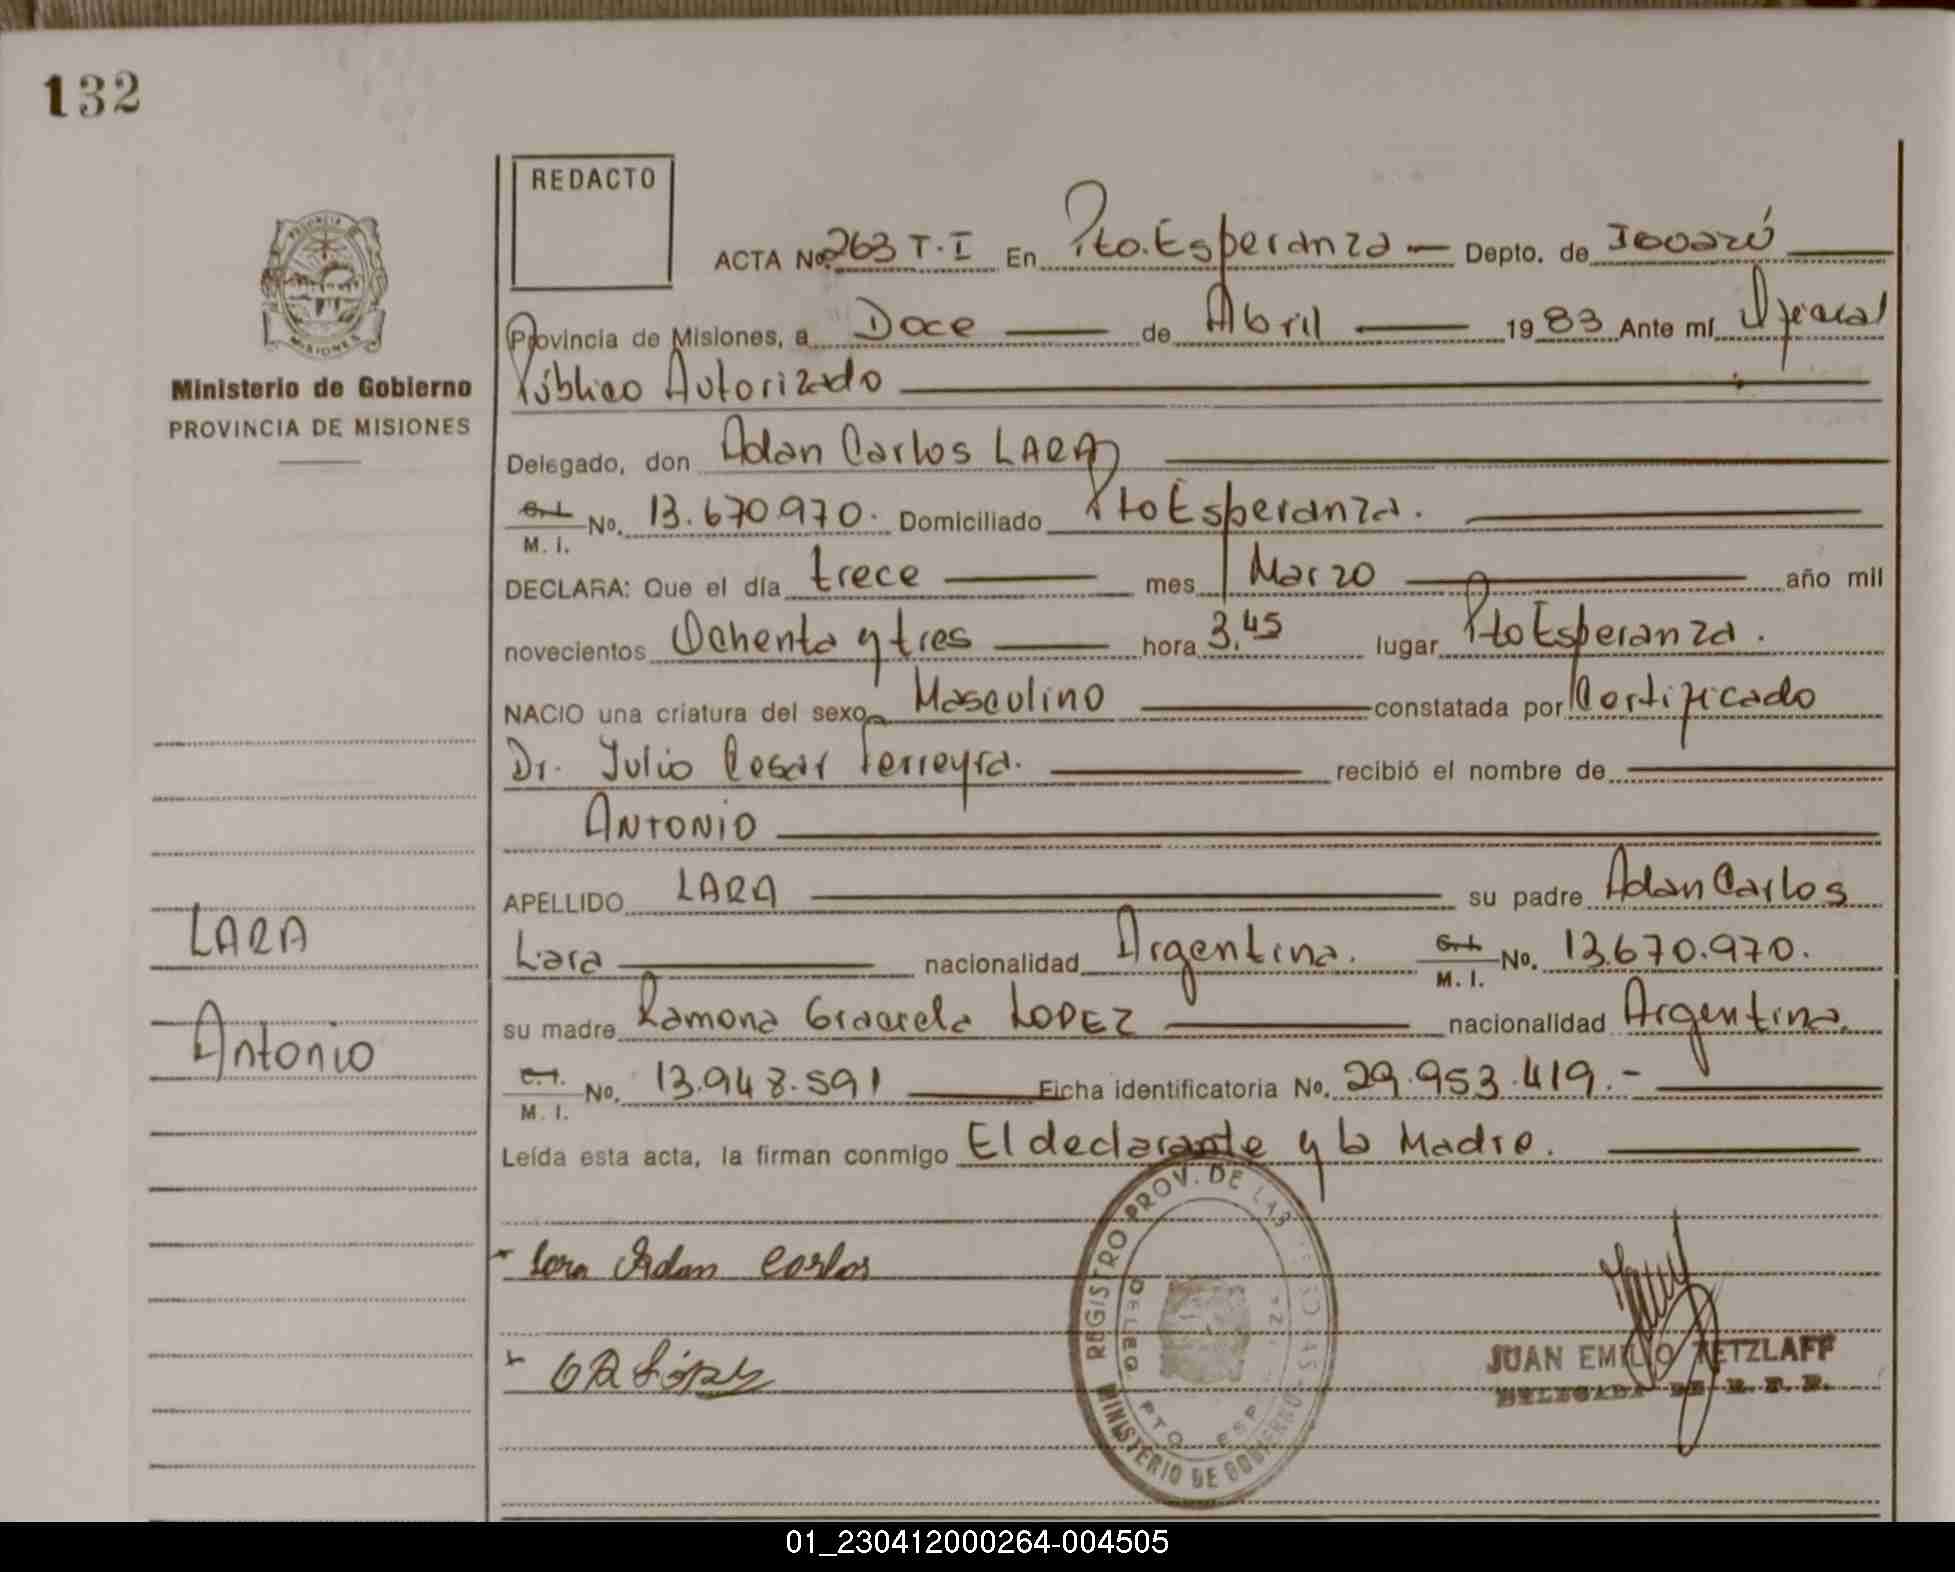 132
REDACTO
ACTA No. 263 T·I En Pto. Esperanza — Depto. de Iguazú
Provincia de Misiones, a Doce de Abril 1983 Ante mí, Oficial
Público Autorizado
PROVINCIA
MISIONES
Ministerio de Gobierno
PROVINCIA DE MISIONES
Delegado, don Adan Carlos LARA
C.I. / M. I. No. 13.670.970. Domiciliado Pto Esperanza.
DECLARA: Que el día trece mes Marzo año mil
novecientos Ochenta y tres hora 3.45 lugar Pto Esperanza.
NACIO una criatura del sexo Masculino constatada por Certificado
Dr. Julio Cesar Ferreyra. recibió el nombre de
ANTONIO
APELLIDO LARA su padre Adan Carlos
Lara nacionalidad Argentina. C.I. / M. I. No. 13.670.970.
su madre Ramona Graciela LOPEZ nacionalidad Argentina.
C.I. / M. I. No. 13.948.591 Ficha identificatoria No. 29.953.419.-
Leída esta acta, la firman conmigo El declarante y la Madre.
LARA
Antonio
Lara Adan Carlos
REGISTRO PROV. DE LAS PERSONAS
MINISTERIO DE GOBIERNO
DELEG. PTO ESP
JUAN EMILIO TETZLAFF
DELEGADO DE R. P. P.
01_230412000264-004505